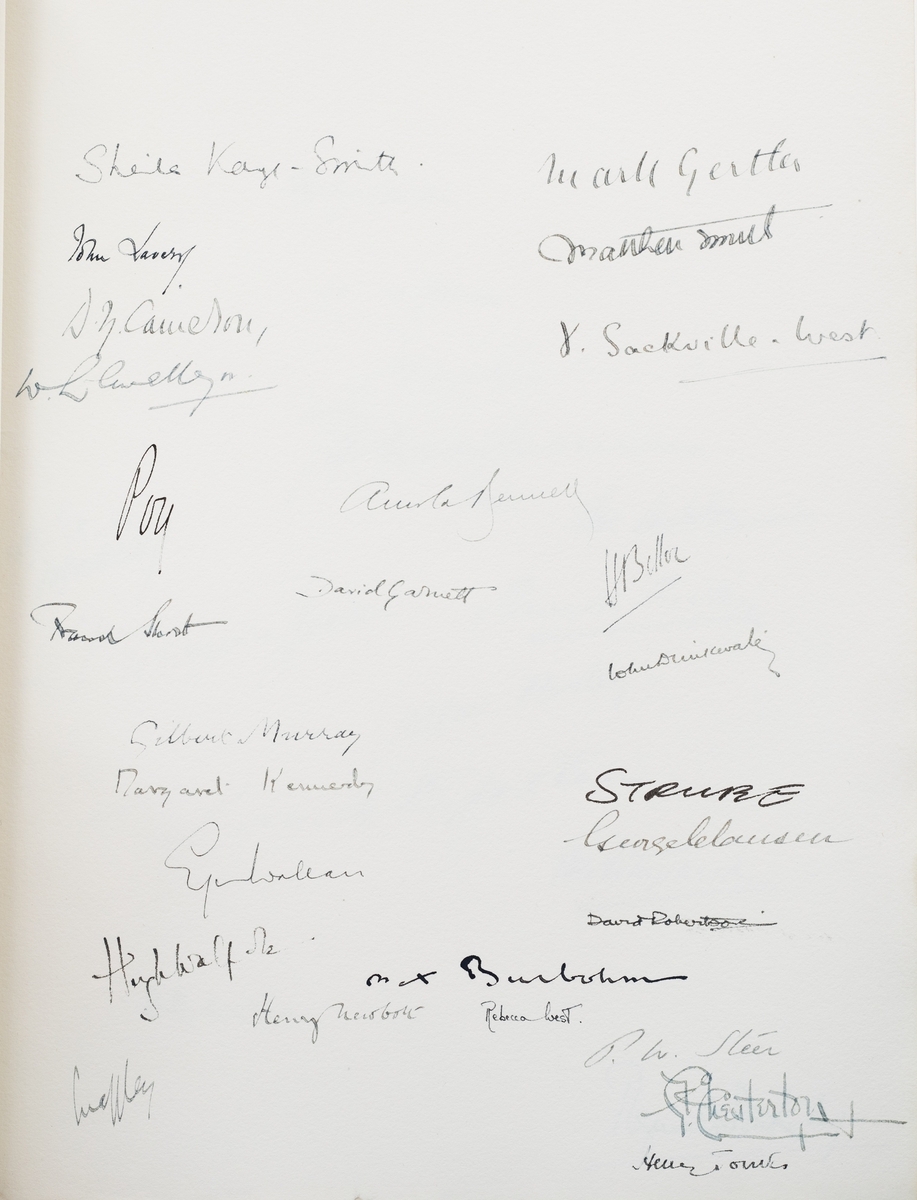 Sheila Kaye-Smith.
Mark Gertler
John Lavery
Matthew Smith
D.Y. Cameron,
V. Sackville-West
W. Llewellyn.
Poy
Arnold Bennett
H Belloc
David Garnett
Francis Short
John Drinkwater
Gilbert Murray
Margaret Kennedy
STRUBE
George Clausen
Edgar Wallace
David Robertson
Hugh Walpole
Max Beerbohm
Henry Newbolt
Rebecca West.
P. W. Steer
G.K. Chesterton
Henry Tonks